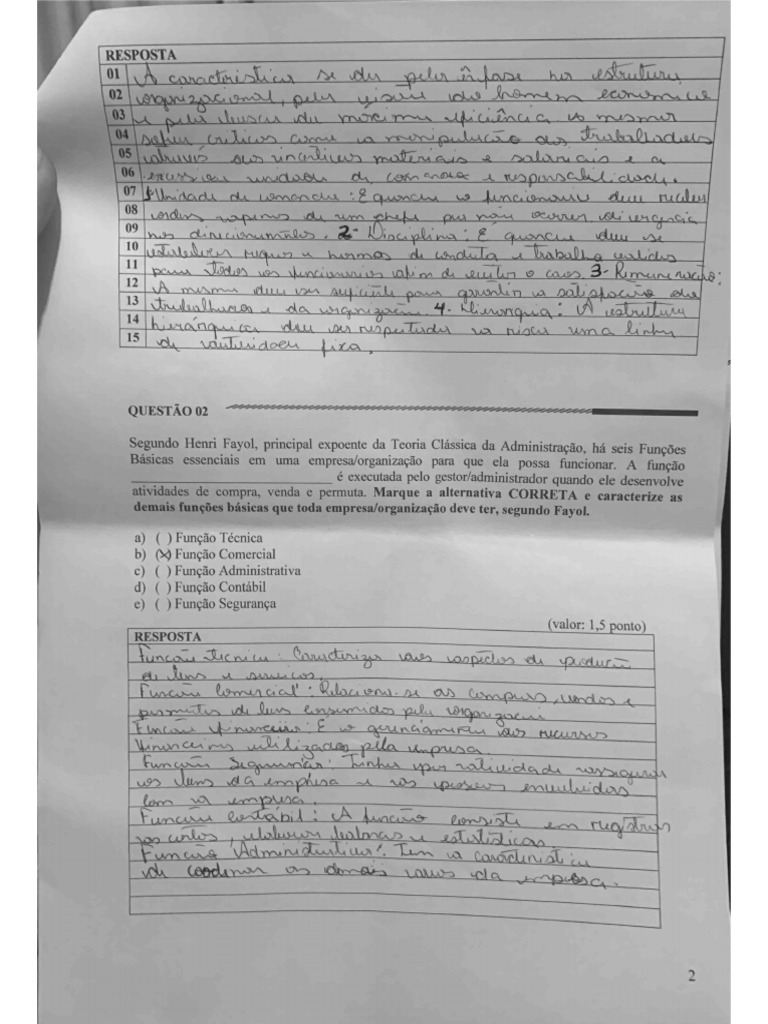 RESPOSTA
01 A caracteristica se deu pela ênfase na estrutura
02 organizacional, pela visão do homem economico
03 e pela busca da maxima eficiência a mesma
04 sofreu criticas como a manipulação dos trabalhadores
05 através dos incentivos materiais e salariais e a
06 excessiva unidade de comando e responsabilidade.
07 1- Unidade de comando: É quando o funcionario deve receber
08 ordens apenas de um chefe pra não ocorrer divergência
09 nos direcionamentos. 2- Disciplina: É quando deve se
10 estabelecer regras e normas de conduta e trabalho validas
11 para todos os funcionarios afim de evitar o caos. 3- Remuneração:
12 A mesma deve ser suficiente para garantir a satisfação dos
13 trabalhadores e da organização. 4- Hierarquia: A estrutura
14 hierárquica deve ser respeitada a risca uma linha
15 de autoridade fixa.
QUESTÃO 02
Segundo Henri Fayol, principal expoente da Teoria Clássica da Administração, há seis Funções
Básicas essenciais em uma empresa/organização para que ela possa funcionar. A função
______________________________ é executada pelo gestor/administrador quando ele desenvolve
atividades de compra, venda e permuta. Marque a alternativa CORRETA e caracterize as
demais funções básicas que toda empresa/organização deve ter, segundo Fayol.
a) ( ) Função Técnica
b) (X) Função Comercial
c) ( ) Função Administrativa
d) ( ) Função Contábil
e) ( ) Função Segurança
(valor: 1,5 ponto)
RESPOSTA
Função tecnica: Caracteriza aos aspectos de produção
de bens e serviços.
Função Comercial: Relaciona-se as compras, vendas e
permutas de bens consumidos pela organização
Função financeira: É o gerenciamento dos recursos
financeiros utilizados pela empresa.
Função Segurança: Tinha por atividade assegurar
os bens da empresa e as pessoas envolvidas
com a empresa.
Função Contábil: A função consiste em registros
custos, elaborar balanços e estatísticas
Função Administrativa: Tem a caracteristica
de coordenar as demais da empresa.
2